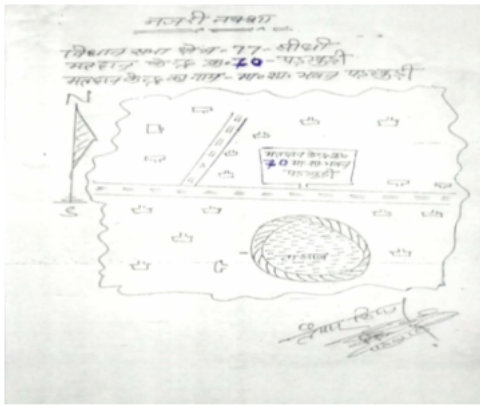 नजरी नक्शा
विधान सभा क्षेत्र-77-सीधी
मतदान केन्द्र क्र.70-पड़खुड़ी
मतदान केन्द्र का नाम-मा.शा. भवन पड़खुड़ी
N
मतदान केन्द्र क्र.
70 मा.शा. भवन
पड़खुड़ी
S
तालाब